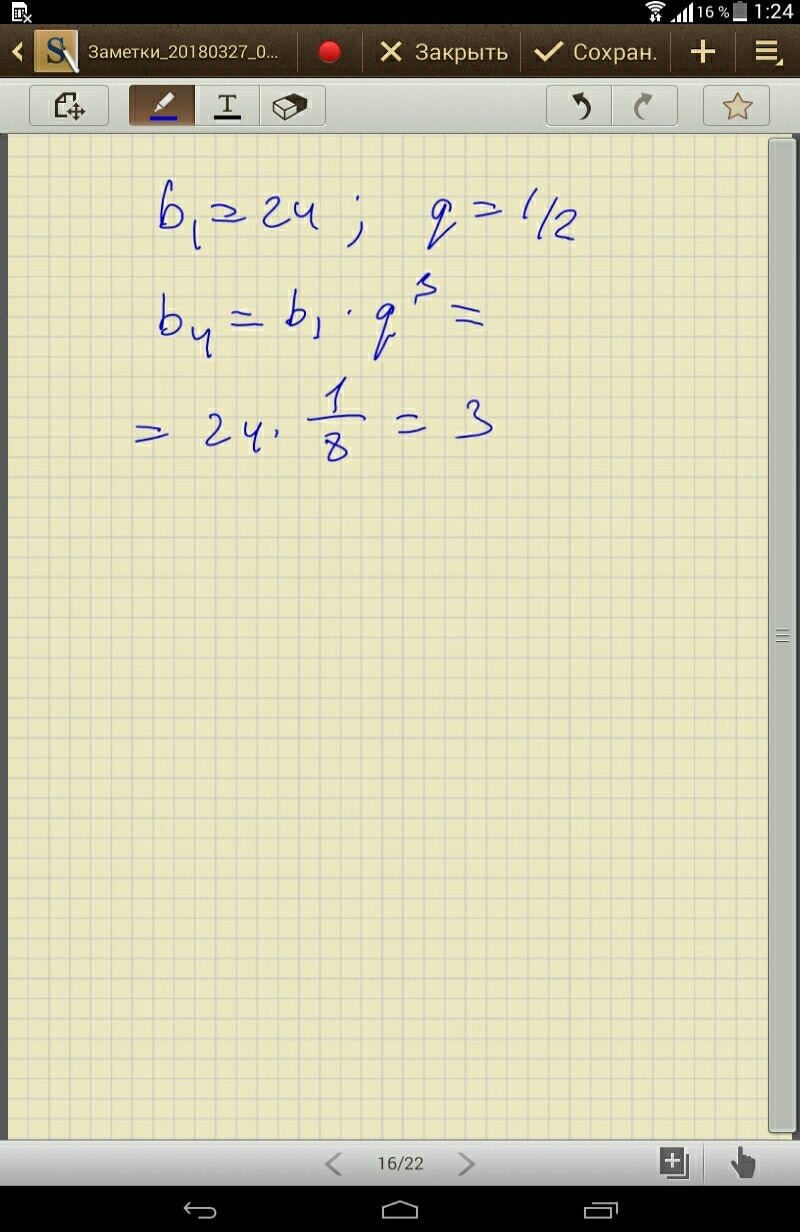 16 % 1:24
Заметки_20180327_0... Закрыть Сохран.
T
b₁ = 24 ; q = 1/2
b₄ = b₁ · q³ =
= 24 · 1/8 = 3
16/22